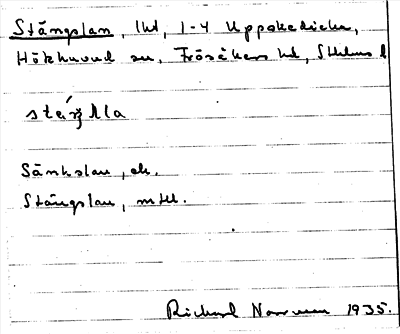 Stängslan, lkl, 1-4 Uppskedicka,
Hökhuvud sn, Frösåkers hd, Sthlms l
Sänkslan, ek.
Stängslan, mtl.
Richard Norrman 1935.